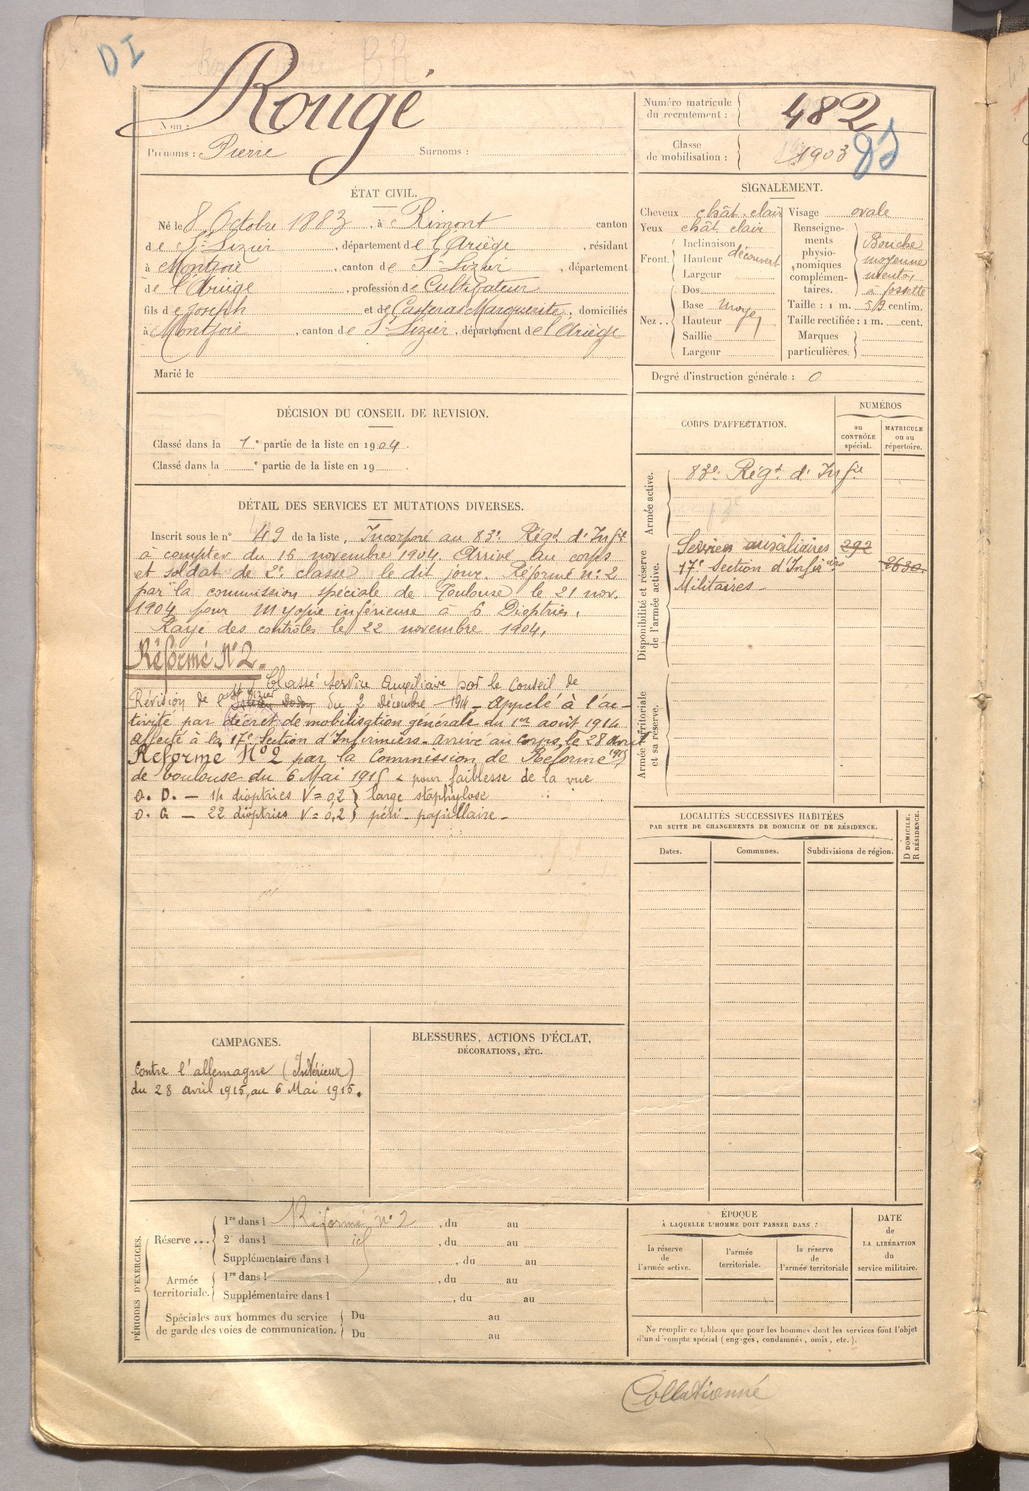 DI
Rougé
Nom :
Prénoms : Pierre Surnoms :
Numéro matricule du recrutement : 482
Classe de mobilisation : 1903
ÉTAT CIVIL.
Né le 8 Octobre 1883, à Rimont canton
de St Lizier, département de l'Ariège, résidant
à Montjoie, canton de St Lizier, département
de l'Ariège, profession de Cultivateur
fils de Joseph et de Casteras Marguerite, domiciliés
à Montjoie, canton de St Lizier, département de l'Ariège
Marié le
SIGNALEMENT.
Cheveux chât. clair Visage ovale
Yeux chât. clair
Front. Inclinaison
Hauteur découvert
Largeur
Nez.. Dos
Base moyen
Hauteur
Saillie
Largeur
Renseignements physionomiques complémentaires.
Bouche
moyenne
menton
à fossette
Taille : 1 m. 59 centim.
Taille rectifiée : 1 m. cent.
Marques particulières:
Degré d'instruction générale : 0
DÉCISION DU CONSEIL DE REVISION.
Classé dans la 1e partie de la liste en 1904.
Classé dans la e partie de la liste en 19
DÉTAIL DES SERVICES ET MUTATIONS DIVERSES.
Inscrit sous le n° 49 de la liste, Incorporé au 83e Régt d'Infie
à compter du 16 novembre 1904. Arrivé au corps
et soldat de 2e classe le dit jour. Réformé n° 2
par la commission spéciale de Toulouse le 21 nov.
1904 pour myopie inférieure à 6 Dioptries.
Rayé des contrôles le 22 novembre 1904.
Réformé N° 2.
Classé Service Auxiliaire par le Conseil de
Révision de St Lizier du 2 Décembre 1914 - Appelé à l'ac-
tivité par décret de mobilisation générale du 1er août 1914
affecté à la 17e Section d'Infirmiers - arrivé au corps le 28 Avril
1915
Réformé N° 2 par la Commission de Réforme
de Toulouse du 6 Mai 1915 pour faiblesse de la vue
O. D. — 14 dioptries V = 0,2 } large staphylose
O. G — 22 dioptries V = 0,2 } péri-papillaire -
CORPS D'AFFECTATION.
NUMÉROS
au CONTRÔLE spécial.
MATRICULE ou au répertoire.
Armée active.
83e Régt d'Infie
Disponibilité et réserve de l'armée active.
Services auxiliaires 292
17e Section d'Infirmiers
Militaires -
Armée territoriale et sa réserve.
LOCALITÉS SUCCESSIVES HABITÉES
PAR SUITE DE CHANGEMENTS DE DOMICILE OU DE RÉSIDENCE.
D DOMICILE. R RÉSIDENCE.
Dates. Communes. Subdivisions de région.
CAMPAGNES.
Contre l'allemagne (Intérieur)
du 28 avril 1915, au 6 Mai 1915.
BLESSURES, ACTIONS D'ÉCLAT,
DÉCORATIONS, ETC.
PÉRIODES D'EXERCICES.
Réserve ... 1re dans l Réformé n° 2, du au
2e dans l id, du au
Supplémentaire dans l, du au
Armée territoriale. 1re dans l, du au
Supplémentaire dans l, du au
Spéciales aux hommes du service de garde des voies de communication.
Du au
Du au
ÉPOQUE
À LAQUELLE L'HOMME DOIT PASSER DANS :
la réserve de l'armée active.
l'armée territoriale.
la réserve de l'armée territoriale
DATE de LA LIBÉRATION du service militaire.
Ne remplir ce tableau que pour les hommes dont les services font l'objet
d'un décompte spécial (engagés, condamnés, omis, etc.).
Collationné